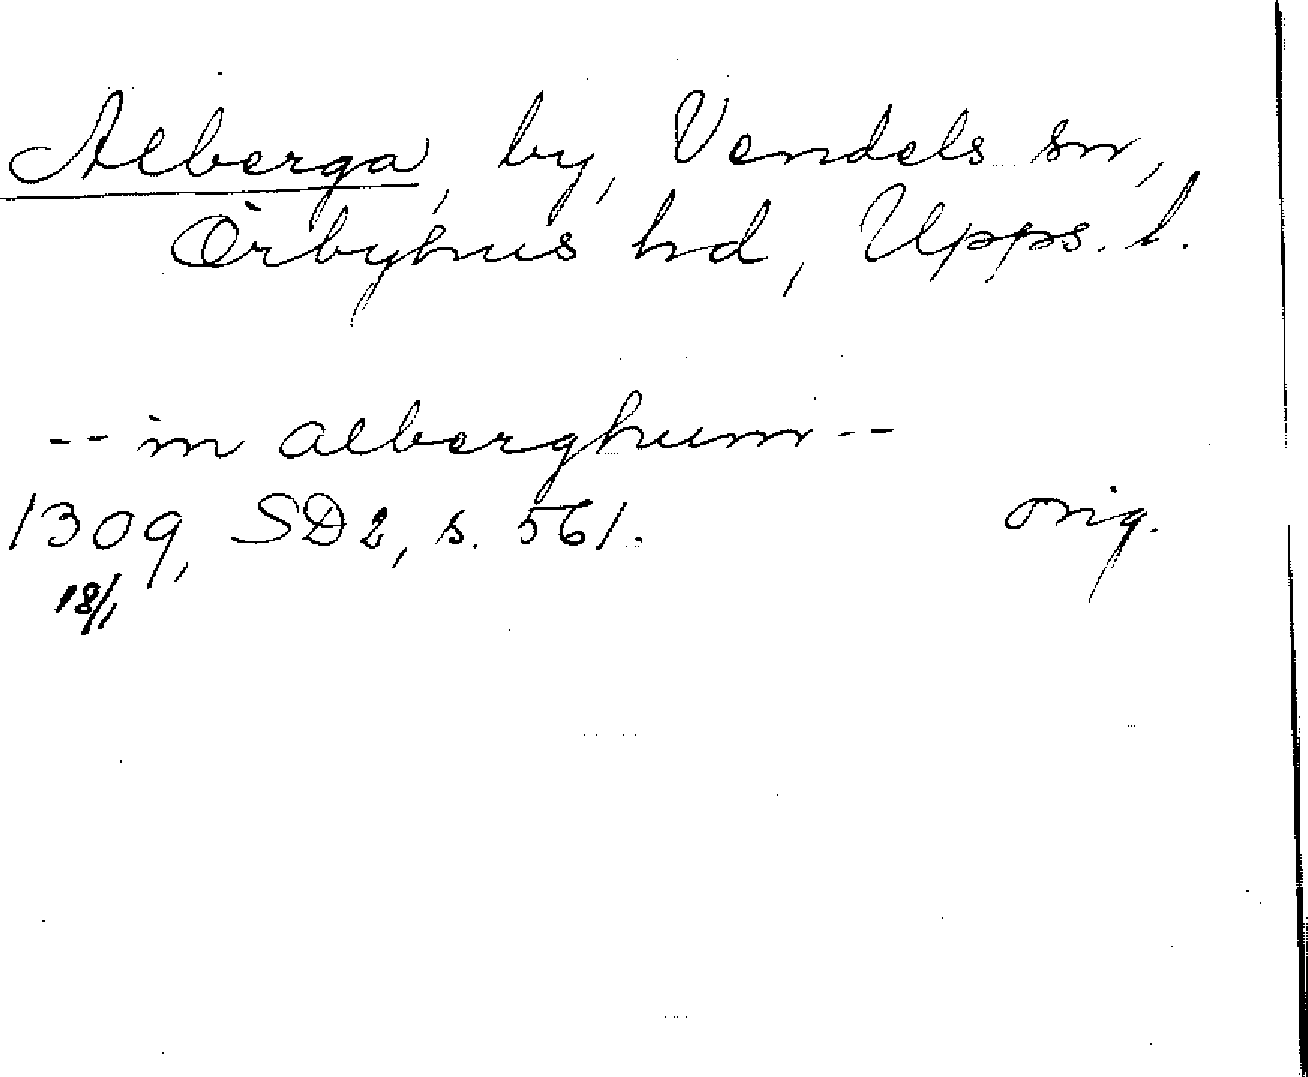 Alberga, by, Vendels sn,
Örbyhus hd, Upps. l.
-- in alberghum --
1309, SD2, s. 561. orig.
18/1